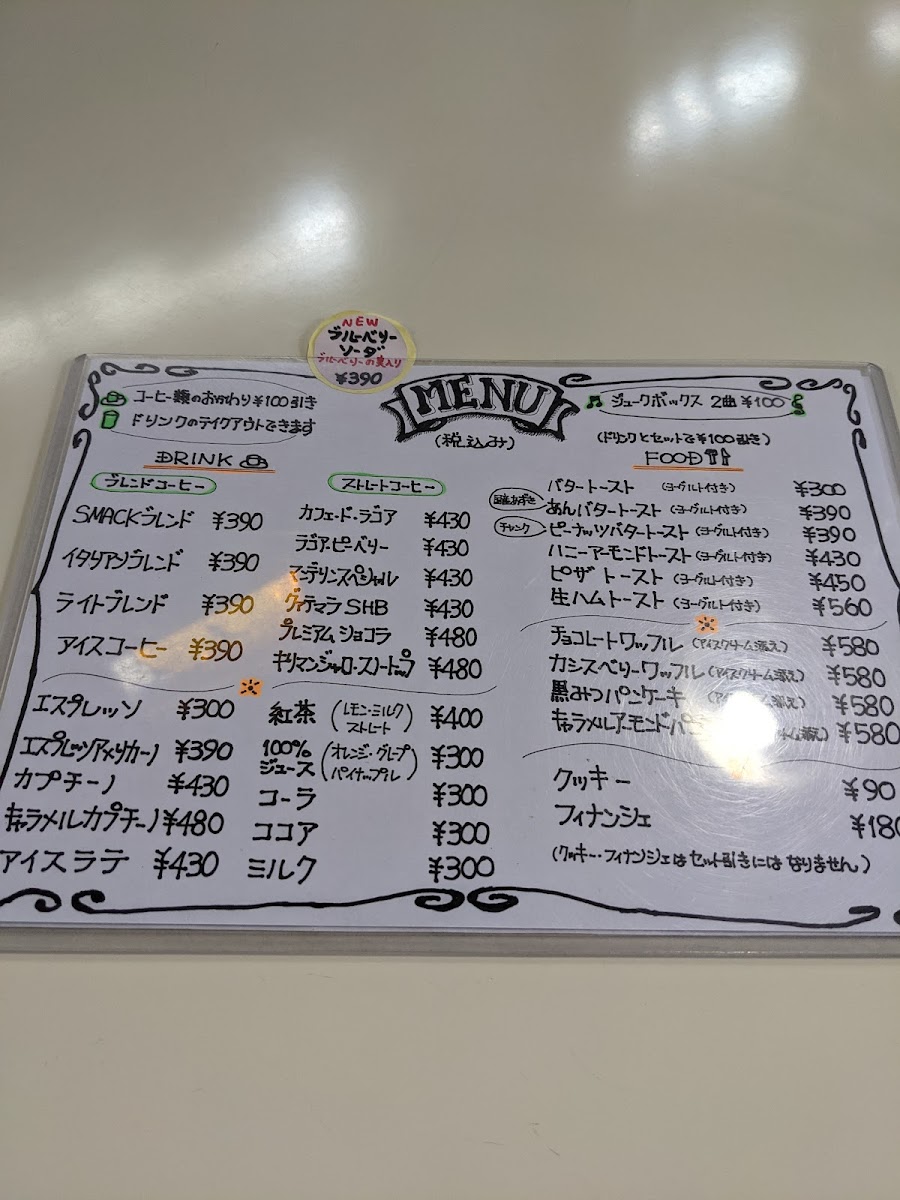 NEW
ブルーベリー
ソーダ
ブルーベリーの実入り
¥390
MENU
(税込み)
コーヒー類のおかわり¥100引き
ドリンクのテイクアウトできます
♫ ジュークボックス 2曲 ¥100
DRINK
ブレンドコーヒー
SMACKブレンド ¥390
イタリアンブレンド ¥390
ライトブレンド ¥390
アイスコーヒー ¥390
エスプレッソ ¥300
エスプレッソアメリカーノ ¥390
カプチーノ ¥430
キャラメルカプチーノ ¥480
アイスラテ ¥430
ストレートコーヒー
カフェ・ド・ラゴア ¥430
ラゴアピーベリー ¥430
マンデリンスペシャル ¥430
グァテマラSHB ¥430
プレミアムショコラ ¥480
キリマンジャロ・スノートップ ¥480
紅茶 (レモン・ミルク ストレート) ¥400
100%ジュース (オレンジ・グレープ パイナップル) ¥300
コーラ ¥300
ココア ¥300
ミルク ¥300
(ドリンクとセットで¥100引き)
FOOD
バタートースト (ヨーグルト付き) ¥300
あんバタートースト (ヨーグルト付き) ¥390
チャンク ピーナッツバタートースト (ヨーグルト付き) ¥390
ハニーアーモンドトースト (ヨーグルト付き) ¥430
ピザトースト (ヨーグルト付き) ¥450
生ハムトースト (ヨーグルト付き) ¥560
チョコレートワッフル (アイスクリーム添え) ¥580
カシスベリーワッフル (アイスクリーム添え) ¥580
黒みつパンケーキ (アイスクリーム添え) ¥580
キャラメルアーモンドパ ーム添え) ¥580
クッキー ¥90
フィナンシェ ¥180
(クッキー・フィナンシェはセット引きにはなりません)